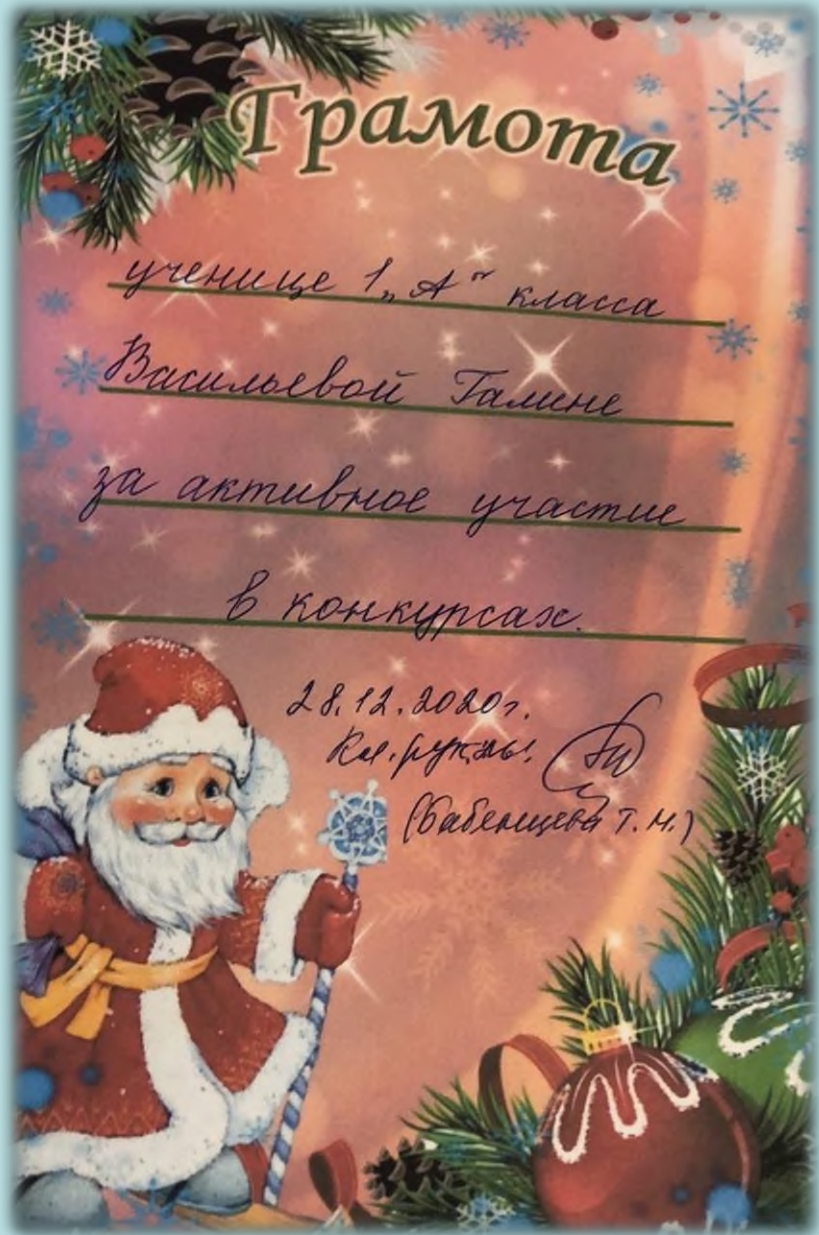 Грамота
ученице 1 „А“ класса
Васильевой Галине
за активное участие
в конкурсах.
28.12.2020г.
Кл.
(Бабенцева Т.М.)